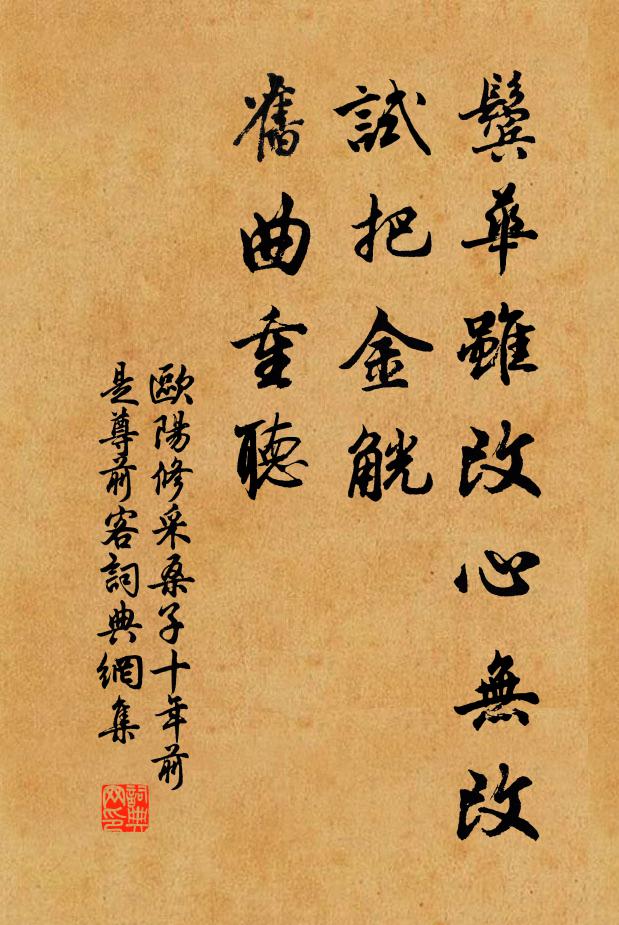 鬢華雖改心無改
試把金觥
舊曲重聽
歐陽修采桑子十年前
是尊前客詞典網集
詞典
网印